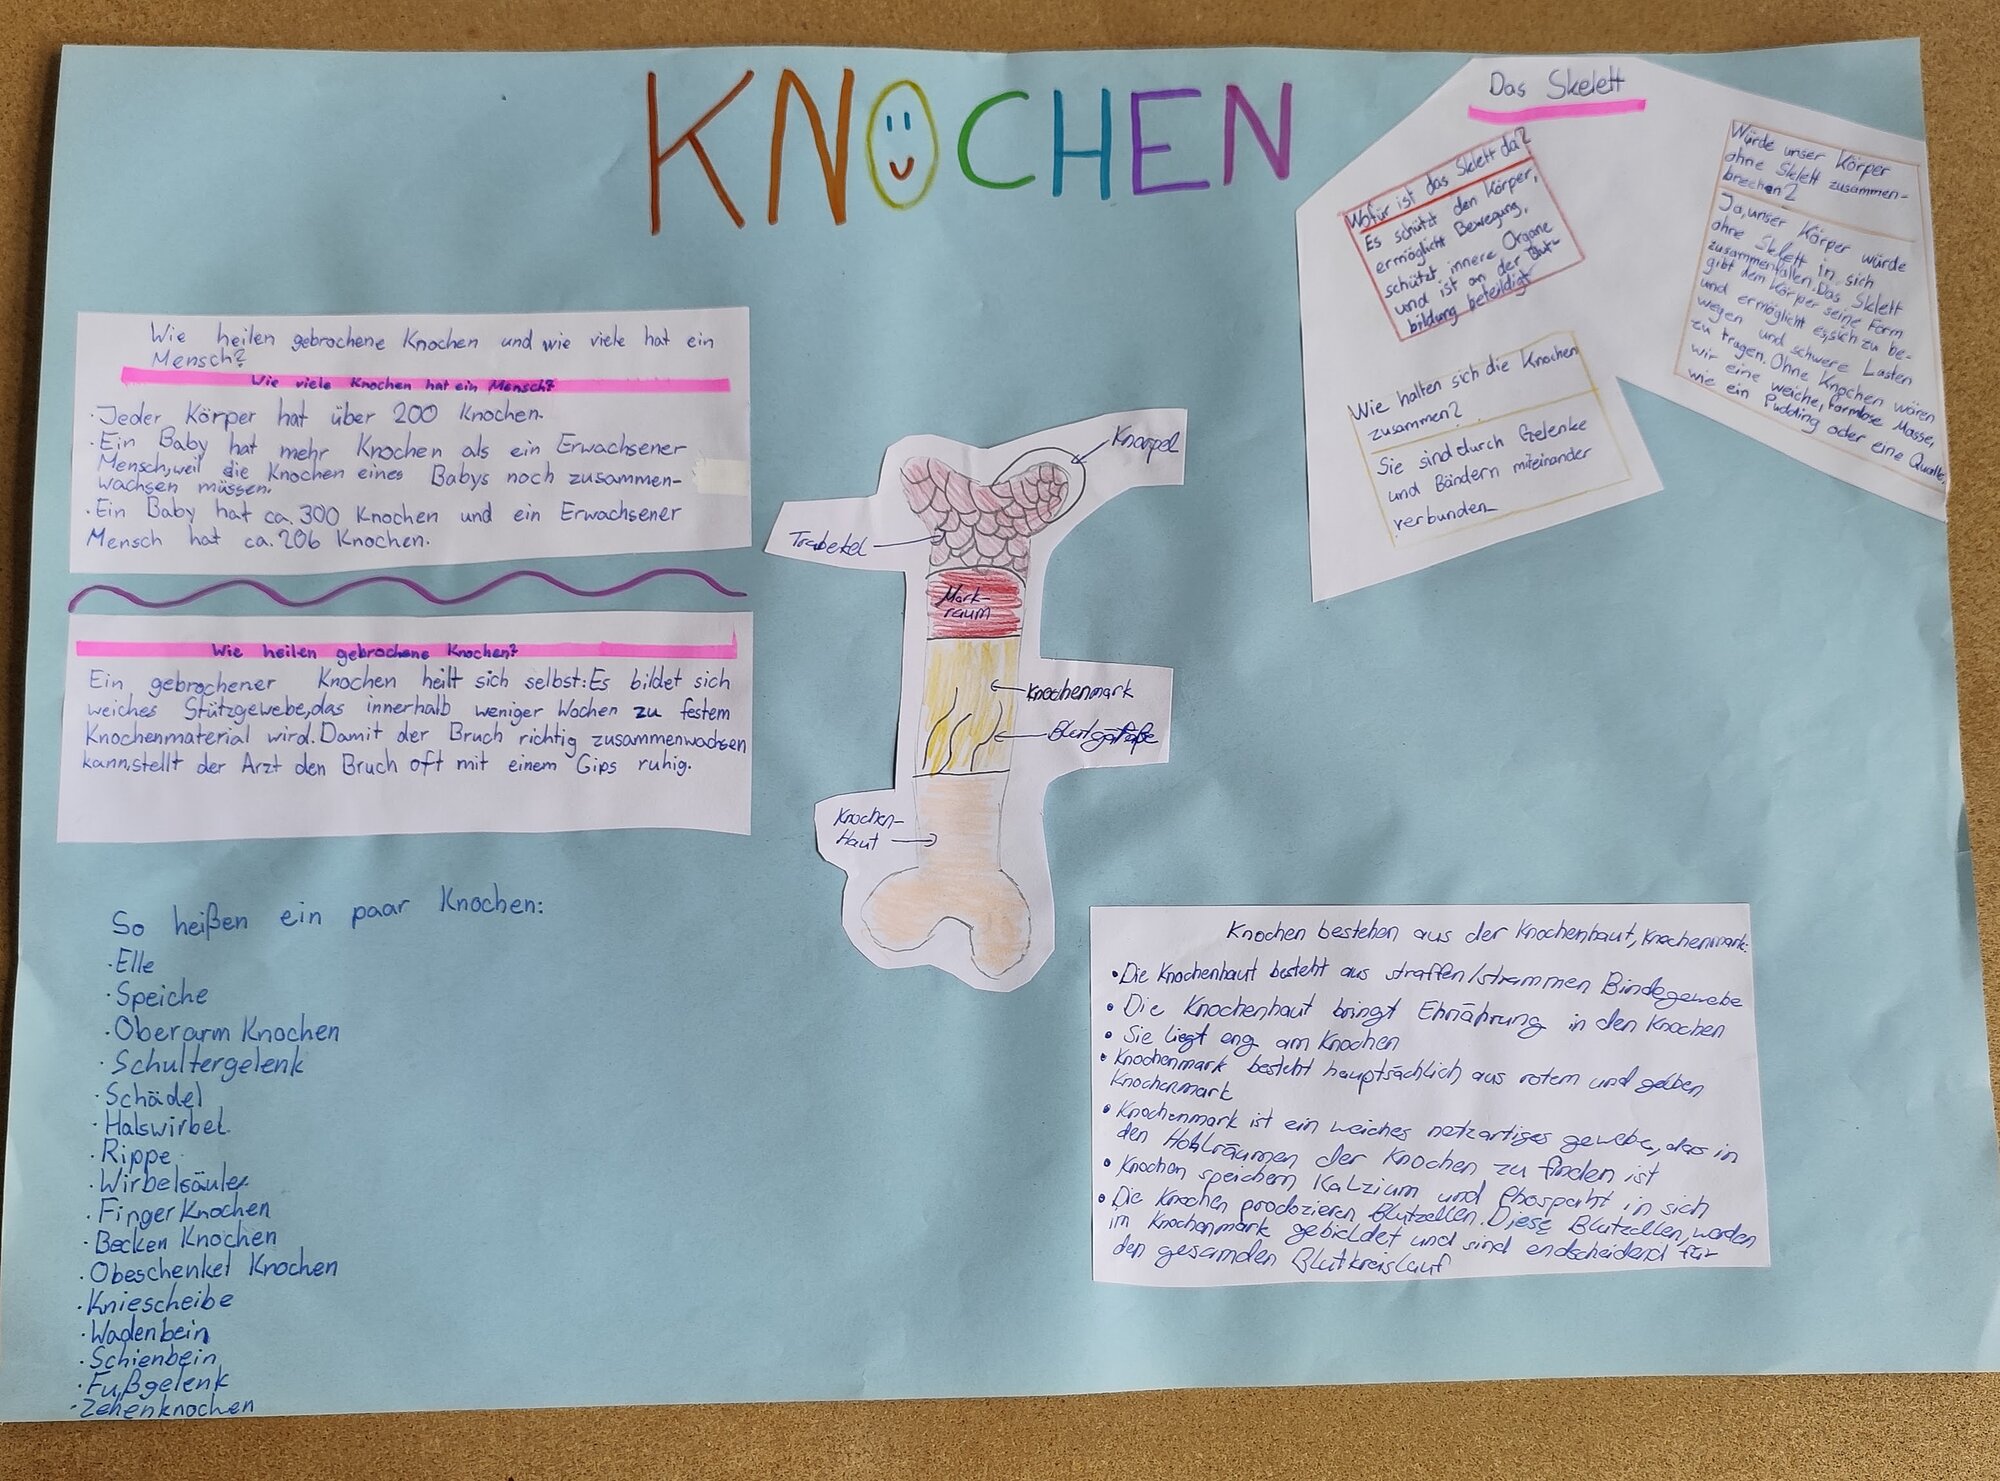 KNOCHEN
Wie heilen gebrochene Knochen und wie viele hat ein
Mensch?
Wie viele Knochen hat ein Mensch?
·Jeder Körper hat über 200 Knochen.
·Ein Baby hat mehr Knochen als ein Erwachsener
Mensch,weil die Knochen eines Babys noch zusammen-
wachsen müssen.
·Ein Baby hat ca. 300 Knochen und ein Erwachsener
Mensch hat ca. 206 Knochen.
Wie heilen gebrochene Knochen?
Ein gebrochener Knochen heilt sich selbst: Es bildet sich
weiches Stützgewebe,das innerhalb weniger Wochen zu festem
Knochenmaterial wird. Damit der Bruch richtig zusammenwachsen
kann,stellt der Arzt den Bruch oft mit einem Gips ruhig.
So heißen ein paar Knochen:
·Elle
·Speiche
·Oberarm Knochen
·Schultergelenk
·Schädel
·Halswirbel
·Rippe
·Wirbelsäule
·Finger Knochen
·Becken Knochen
·Obeschenkel Knochen
·Kniescheibe
·Wadenbein
·Schienbein
·Fußgelenk
·Zehenknochen
Knorpel
Trabekel
Mark-
raum
Knochenmark
Blutgefäße
Knochen-
Haut
Das Skelett
Wofür ist das Skelett da?
Es schützt den Körper,
ermöglicht Bewegung,
schützt innere Organe
und ist an der Blut-
bildung beteildigt
Wie halten sich die Knochen
zusammen?
Sie sind durch Gelenke
und Bändern miteinander
verbunden
Würde unser Körper
ohne Skelett zusammen-
brechen?
Ja, unser Körper würde
ohne Skelett in sich
zusammenfallen. Das Skelett
gibt dem Körper seine Form
und ermöglicht es,sich zu be-
wegen und schwere Lasten
zu tragen. Ohne Knochen wären
wir eine weiche, formlose Masse,
wie ein Pudding oder eine Qualle.
Knochen bestehen aus der Knochenhaut, Knochenmark:
• Die Knochenhaut besteht aus straffen/strammen Bindegewebe
• Die Knochenhaut bringt Ehrnährung in den Knochen
• Sie liegt eng am Knochen
• Knochenmark besteht hauptsächlich aus rotem und gelben
Knochenmark
• Knochenmark ist ein weiches netzartiges gewebe, das in
den Hohlräumen der Knochen zu finden ist
• Knochen speichern Kalzium und Phospaht in sich
• Die Knochen prodozieren Blutzellen. Diese Blutzellen, werden
im Knochenmark gebieldet und sind endscheidend für
den gesamden Blutkreislauf